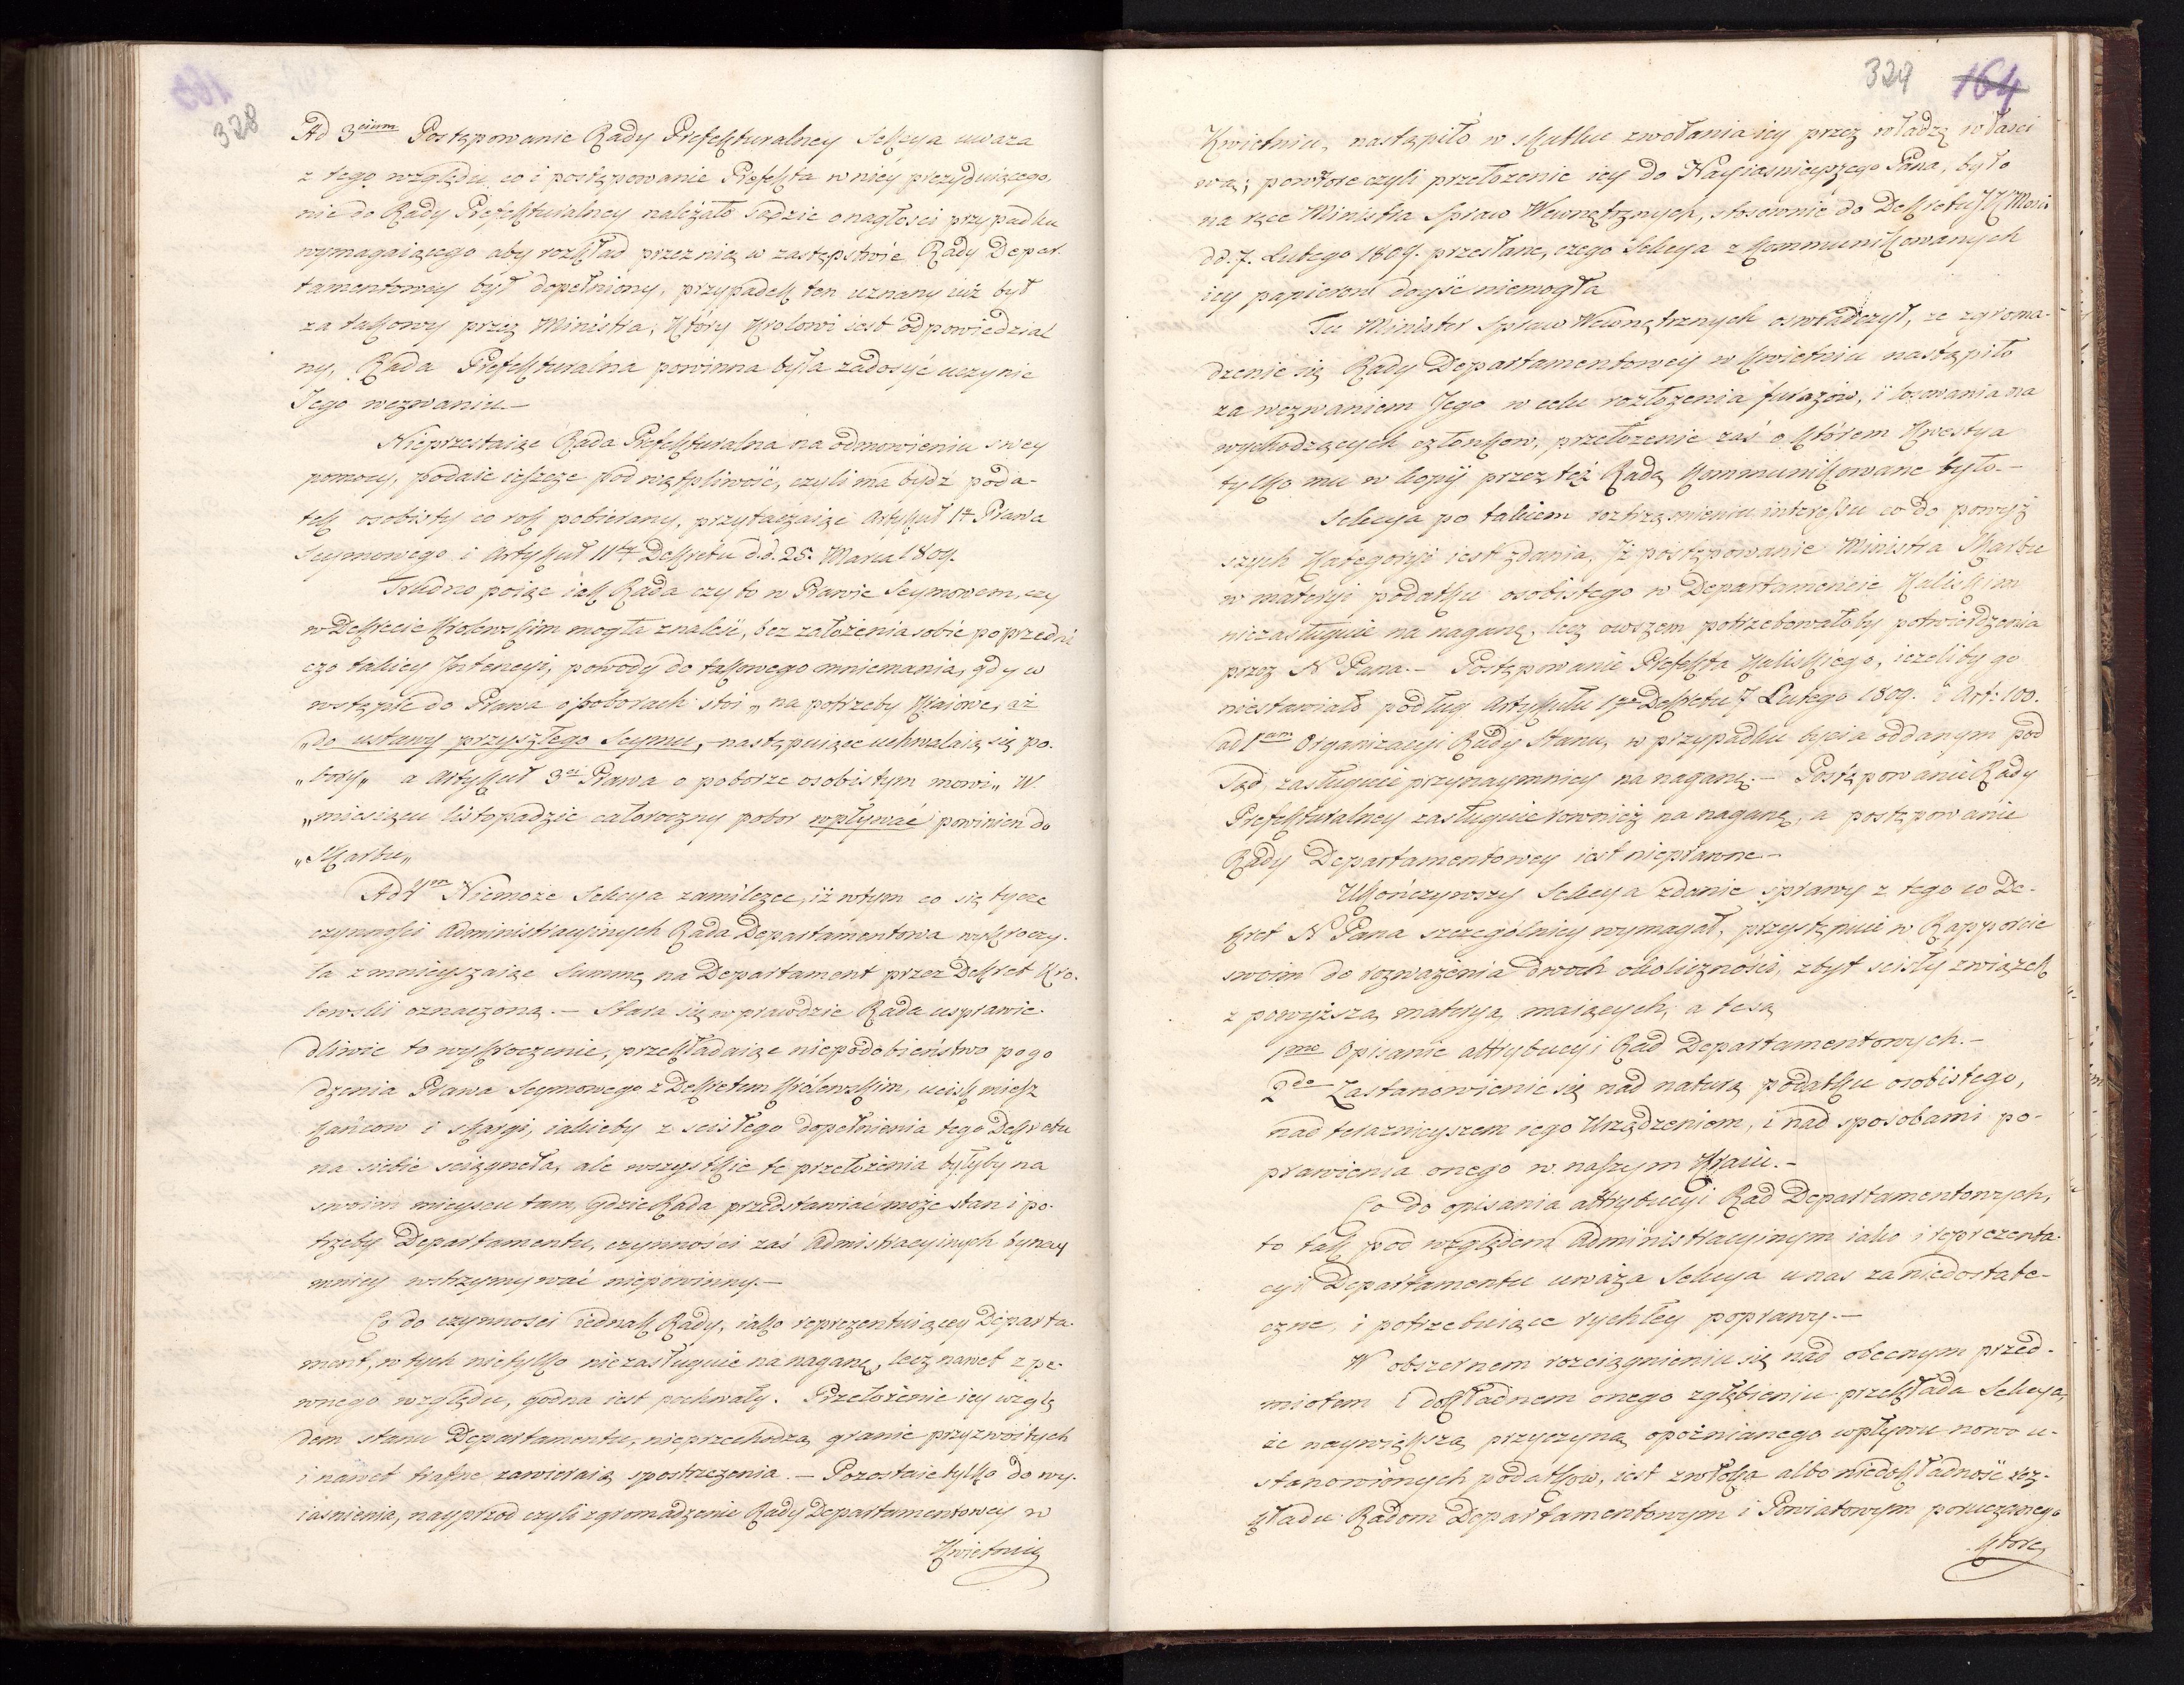 328
Ad 3cium Postępowanie Rady Prefekturalney Sekcya uważa
z tego względu co i postępowanie Prefekta w niey prezyduiącego,
nie do Rady Prefekturalney należało sądzic o nagłości przypadku
wymagaiącego aby rozkład przez nią w zastępstwie Rady Depar-
tamentowey był dopełniony, przypadek ten uznany iuż był
za takowy przez Ministra, który Krolowi iest odpowiedzial
ny, Rada Prefekturalna powinna była zadosyć uczynic
Jego wezwaniu.—
Nieprzestaiąc Rada Prefekturalna na odmowieniu swey
pomocy, podaie ieszcze pod wątpliwość, czyli ma bydź poda-
tek osobisty co rok pobierany, przytaczaiąc Artykuł 1szy Prawa
Seymowego i Artykuł 11ty Dekretu d.d. 25. Marca 1809.
Trudno poiąc iak Rada czy to w Prawie Seymowem, czy
w Dekrecie Krolewskim mogła znaleść, bez założenia sobie poprzedni
czo takiey Intencyi, powody do takowego mniemania, gdy w
wstępie do Prawa o poborach stoi „na potrzeby Kraiowe, aż
„do ustawy przyszłego Seymu, następuiące uchwalaią się po-
„bory„ a Artykuł 3ci Prawa o poborze osobistym mowi „W.
„miesiącu listopadzie całoroczny pobor wpływać powinien do
„Skarbu„
Ad 4m Niemoże Sekcya zamilczec, iż w tym co się tycze
czynności Administracyinych Rada Departamentowa wykroczy-
ła zmnieyszaiąc Summę na Departament przez Dekret Kro-
lewski oznaczoną.— Stara się wprawdzie Rada usprawie-
dliwic to wykroczenie, przekładaiąc niepodobieństwo pogo
dzenia Prawa Seymowego z Dekretem Królewskim, ucisk miesz
kańcow i skargi, iakieby z scisłego dopełnienia tego Dekretu
na siebie sciągnęła, ale wszystkie te przełożenia byłyby na
swoim mieyscu tam, gdzie Rada przedstawiać może stan i po-
trzeby Departamentu, czynności zaś Admistracyinych bynay
mniey wstrzymywać niepowinny.—
Co do czynnosci iednak Rady, iako reprezentuiącey Departa-
ment, w tych nietylko niezasługuie na naganę, lecz nawet z pe-
wnego względu, godna iest pochwały. Przełożenie iey wzglę
dem stanu Departamentu, nieprzechodzą granic przyzwoitych
i nawet trafne zawieraią spostrzeżenia.— Pozostaie tylko do wy-
iaśnienia, nayprzod czyli zgromadzenie Rady Departamentowey w
Kwietniu
329 164
Kwietniu, nastąpiło w skutku zwołania iey przez władzę właści
wą; powtore czyli przełożenie iey do Nayiaśnieyszego Pana, było
na ręce Ministra Spraw Wewnętrznych, stosownie do Dekretu J K Mości
d.d. 7. Lutego 1809. przesłane, czego Sekcya z kommunikowanych
iey papierow doyść niemogła
Tu Minister Spraw Wewnętrznych oswiadczył, że zgroma-
dzenie się Rady Departamentowey w Kwietniu nastąpiło
za wezwaniem Jego w celu rozłożenia furażów, i losowania na
wychodzących członkow, przełożenie zaś o którem Kwestya
tylko mu w kopij przez też Radę kommunikowane było.—
Sekcya po takiem roztrząśnieniu interessu co do powyż
szych kategoryi iest zdania, Iż postępowanie Ministra Skarbu
w materyi podatku osobistego w Departamencie Kaliskim
niezasługuie na naganę, lecz owszem potrzebowałoby potwierdzenia
przez N Pana.— Postępowanie Prefekta Kaliskiego, ieżeliby go
niestawiało podług Artykułu 1go Dekretu 7 Lutego 1809. i Art: 100.
ad 1am Organizacyi Rady Stanu, w przypadku bycia oddanym pod
Sąd, zasługuie przynaymniey na naganę.— Postępowanie Rady
Prefekturalney zasługuie rownież na naganę, a postępowanie
Rady Departamentowey iest nieprawne.—
Ukończywszy Sekcya zdanie sprawy z tego co De-
kret N Pana szczególniey wymagał, przystępuie w Rapporcie
swoim do rozważenia dwoch okoliczności, zbyt scisły związek
z powyższą materyą maiących, a te są
1mo Opisanie attrybucyi Rad Departamentowych.—
2do Zastanowienie się nad naturą podatku osobistego,
nad teraznieyszem iego Urządzeniem, i nad sposobami po-
prawienia onego w naszym Kraiu.—
Co do opisania attrybucyi Rad Departamentowych,
to tak pod względem Administracyinym iako i reprezenta-
cyi Departamentu uważa Sekcya u nas za niedostate-
czne, i potrzebuiące rychłey poprawy.—
W obszernem rozciągnieniu się nad obecnym przed-
miotem i dokładnem onego zgłębieniu przekłada Sekcya,
że naywiększą przyczyną opożnianego wpływu nowo u-
stanowionych podatkow, iest zwłoka albo niedokładność roz-
kładu Radom Departamentowym i Powiatowym poruczonego
które